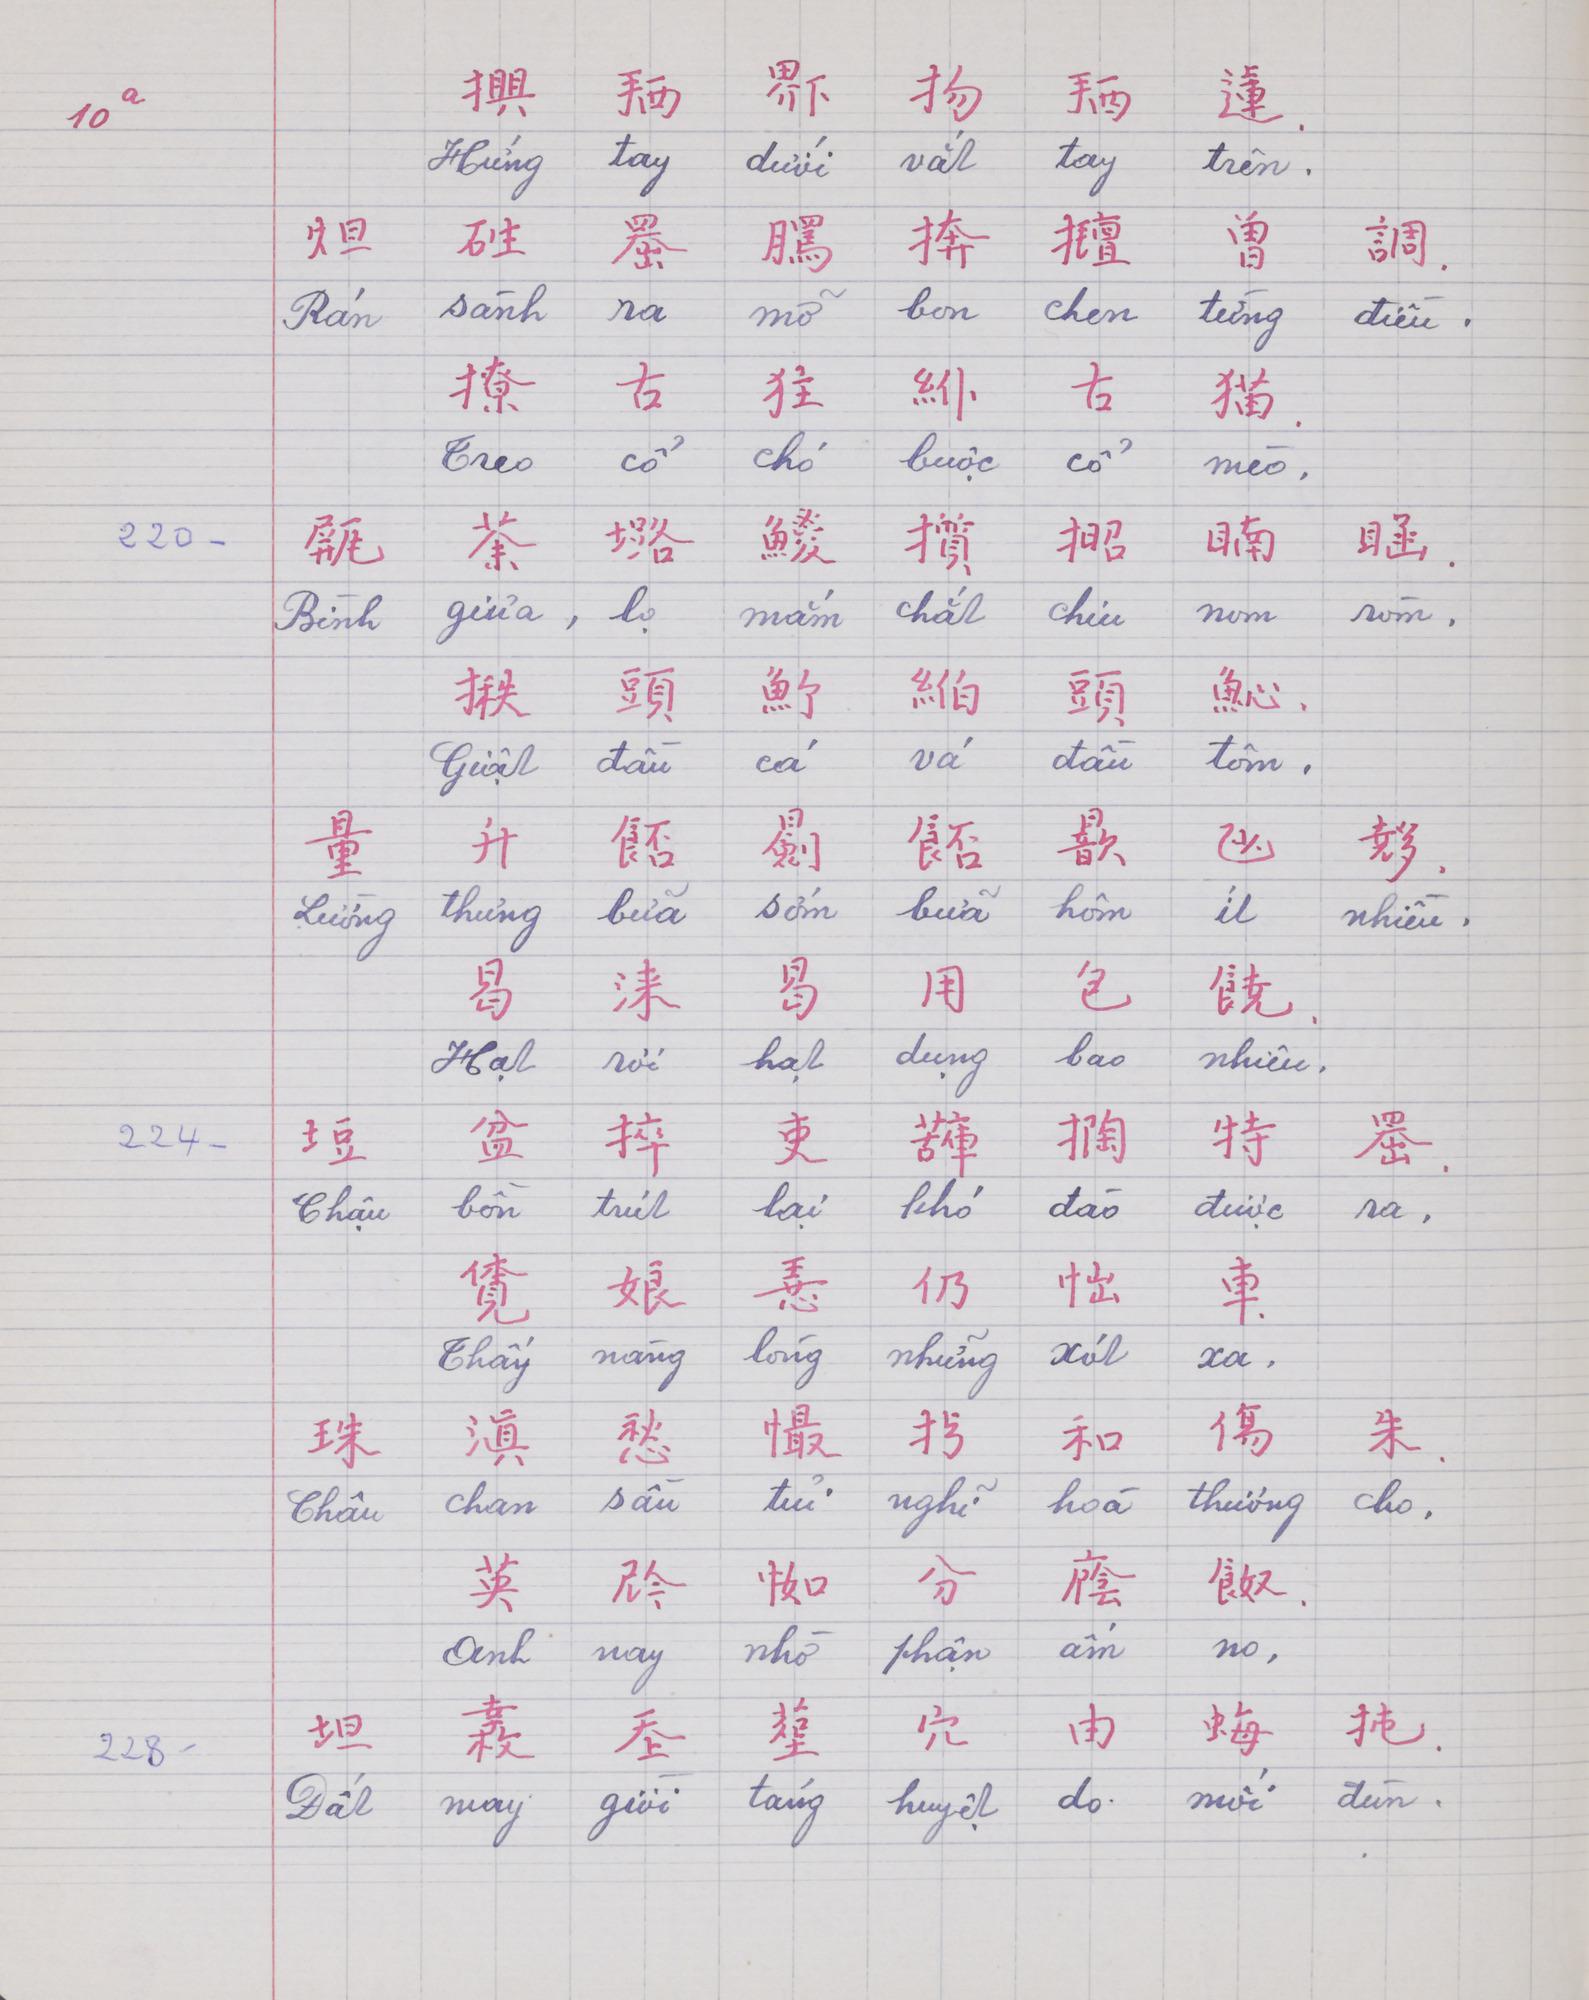 10a
撋 𢬣 𤲂 抅 𢬣 蓮.
Hứng tay dưới vắt tay trên.
炟 硅 𦋦 騭 捹 擅 曾 調.
Rán sành ra mỡ bon chen từng điều.
撩 古 㹥 𥾾 古 猫.
Treo cổ chó buộc cổ mèo.
220- 瓶 茶 𡍚 𩻐 擳 招 喃 𥄮.
Bình giưa, lọ mắm chắt chiu nom ròm.
揪 頭 𩵜 絈 頭 𩵽.
Giật đầu cá vá đầu tôm.
量 升 𩛷 𣌋 𩛷 歆 𠃣 𡗉.
Lường thưng bữa sớm bữa hôm ít nhiều.
曷 洡 曷 用 包 饒.
Hạt rơi hạt dụng bao nhiêu.
224- 垣 盆 捽 吏 𧁷 掏 特 𦋦.
Chậu bồn trút lại khó đào được ra.
覓 娘 𢚸 仍 怞 車.
Thấy nàng lòng những xót xa.
珠 滇 愁 㦎 扲 和 傷 朱.
Châu chan sầu tủi nghĩ hoà thương cho.
英 𫢩 𢘾 分 廕 𩛂.
Anh nay nhờ phận ấm no,
228- 坦 𢆧 𡗶 塟 穴 由 𧋟 扽.
Đất may giời táng huyệt do mối đùn.